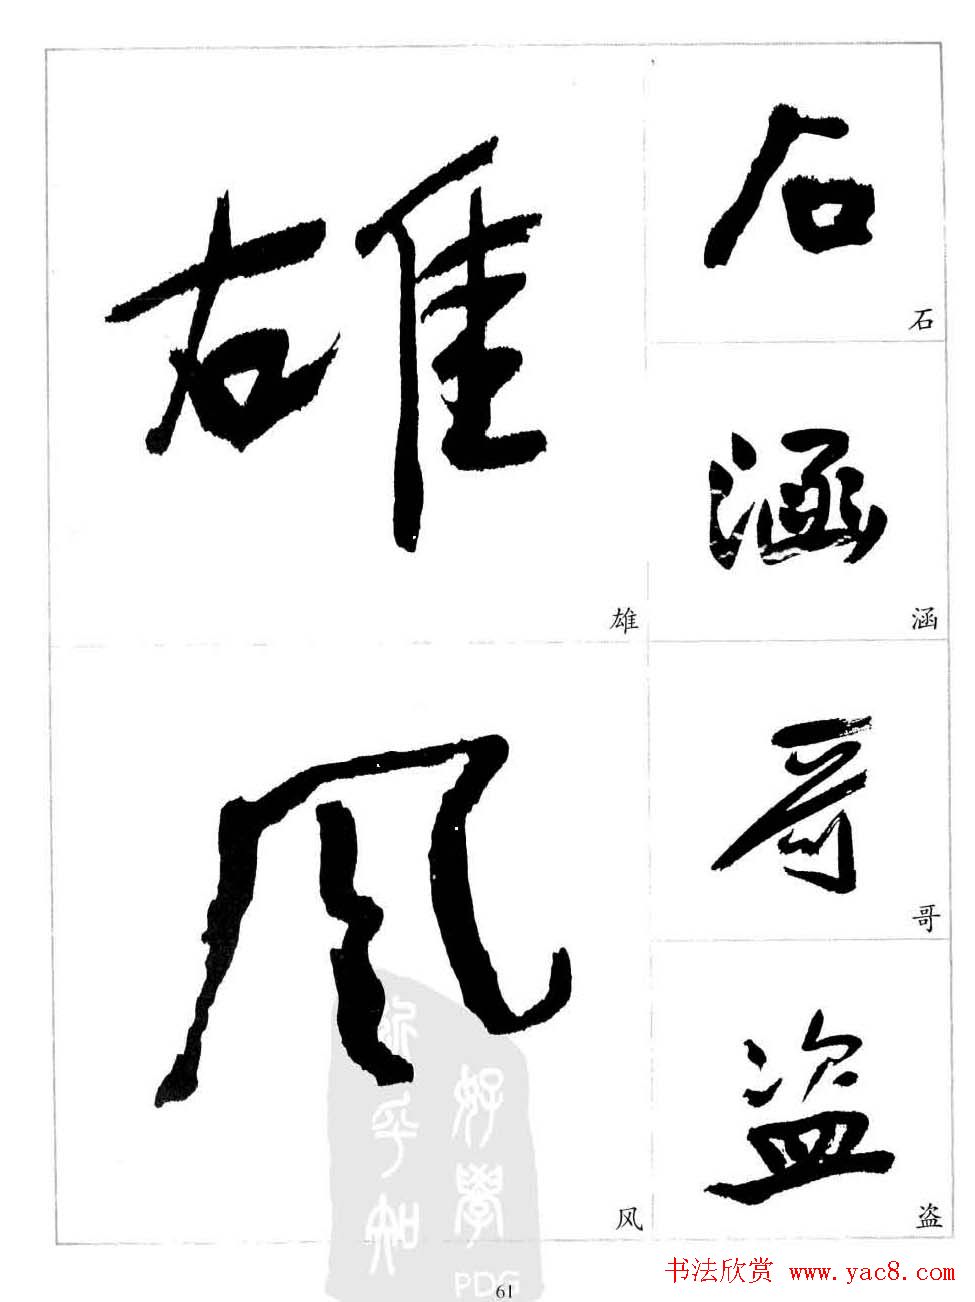 雄
雄
风
风
石
石
涵
涵
哥
哥
盗
盗
好學
近乎知
PDG
61
书法欣赏 www.yac8.com